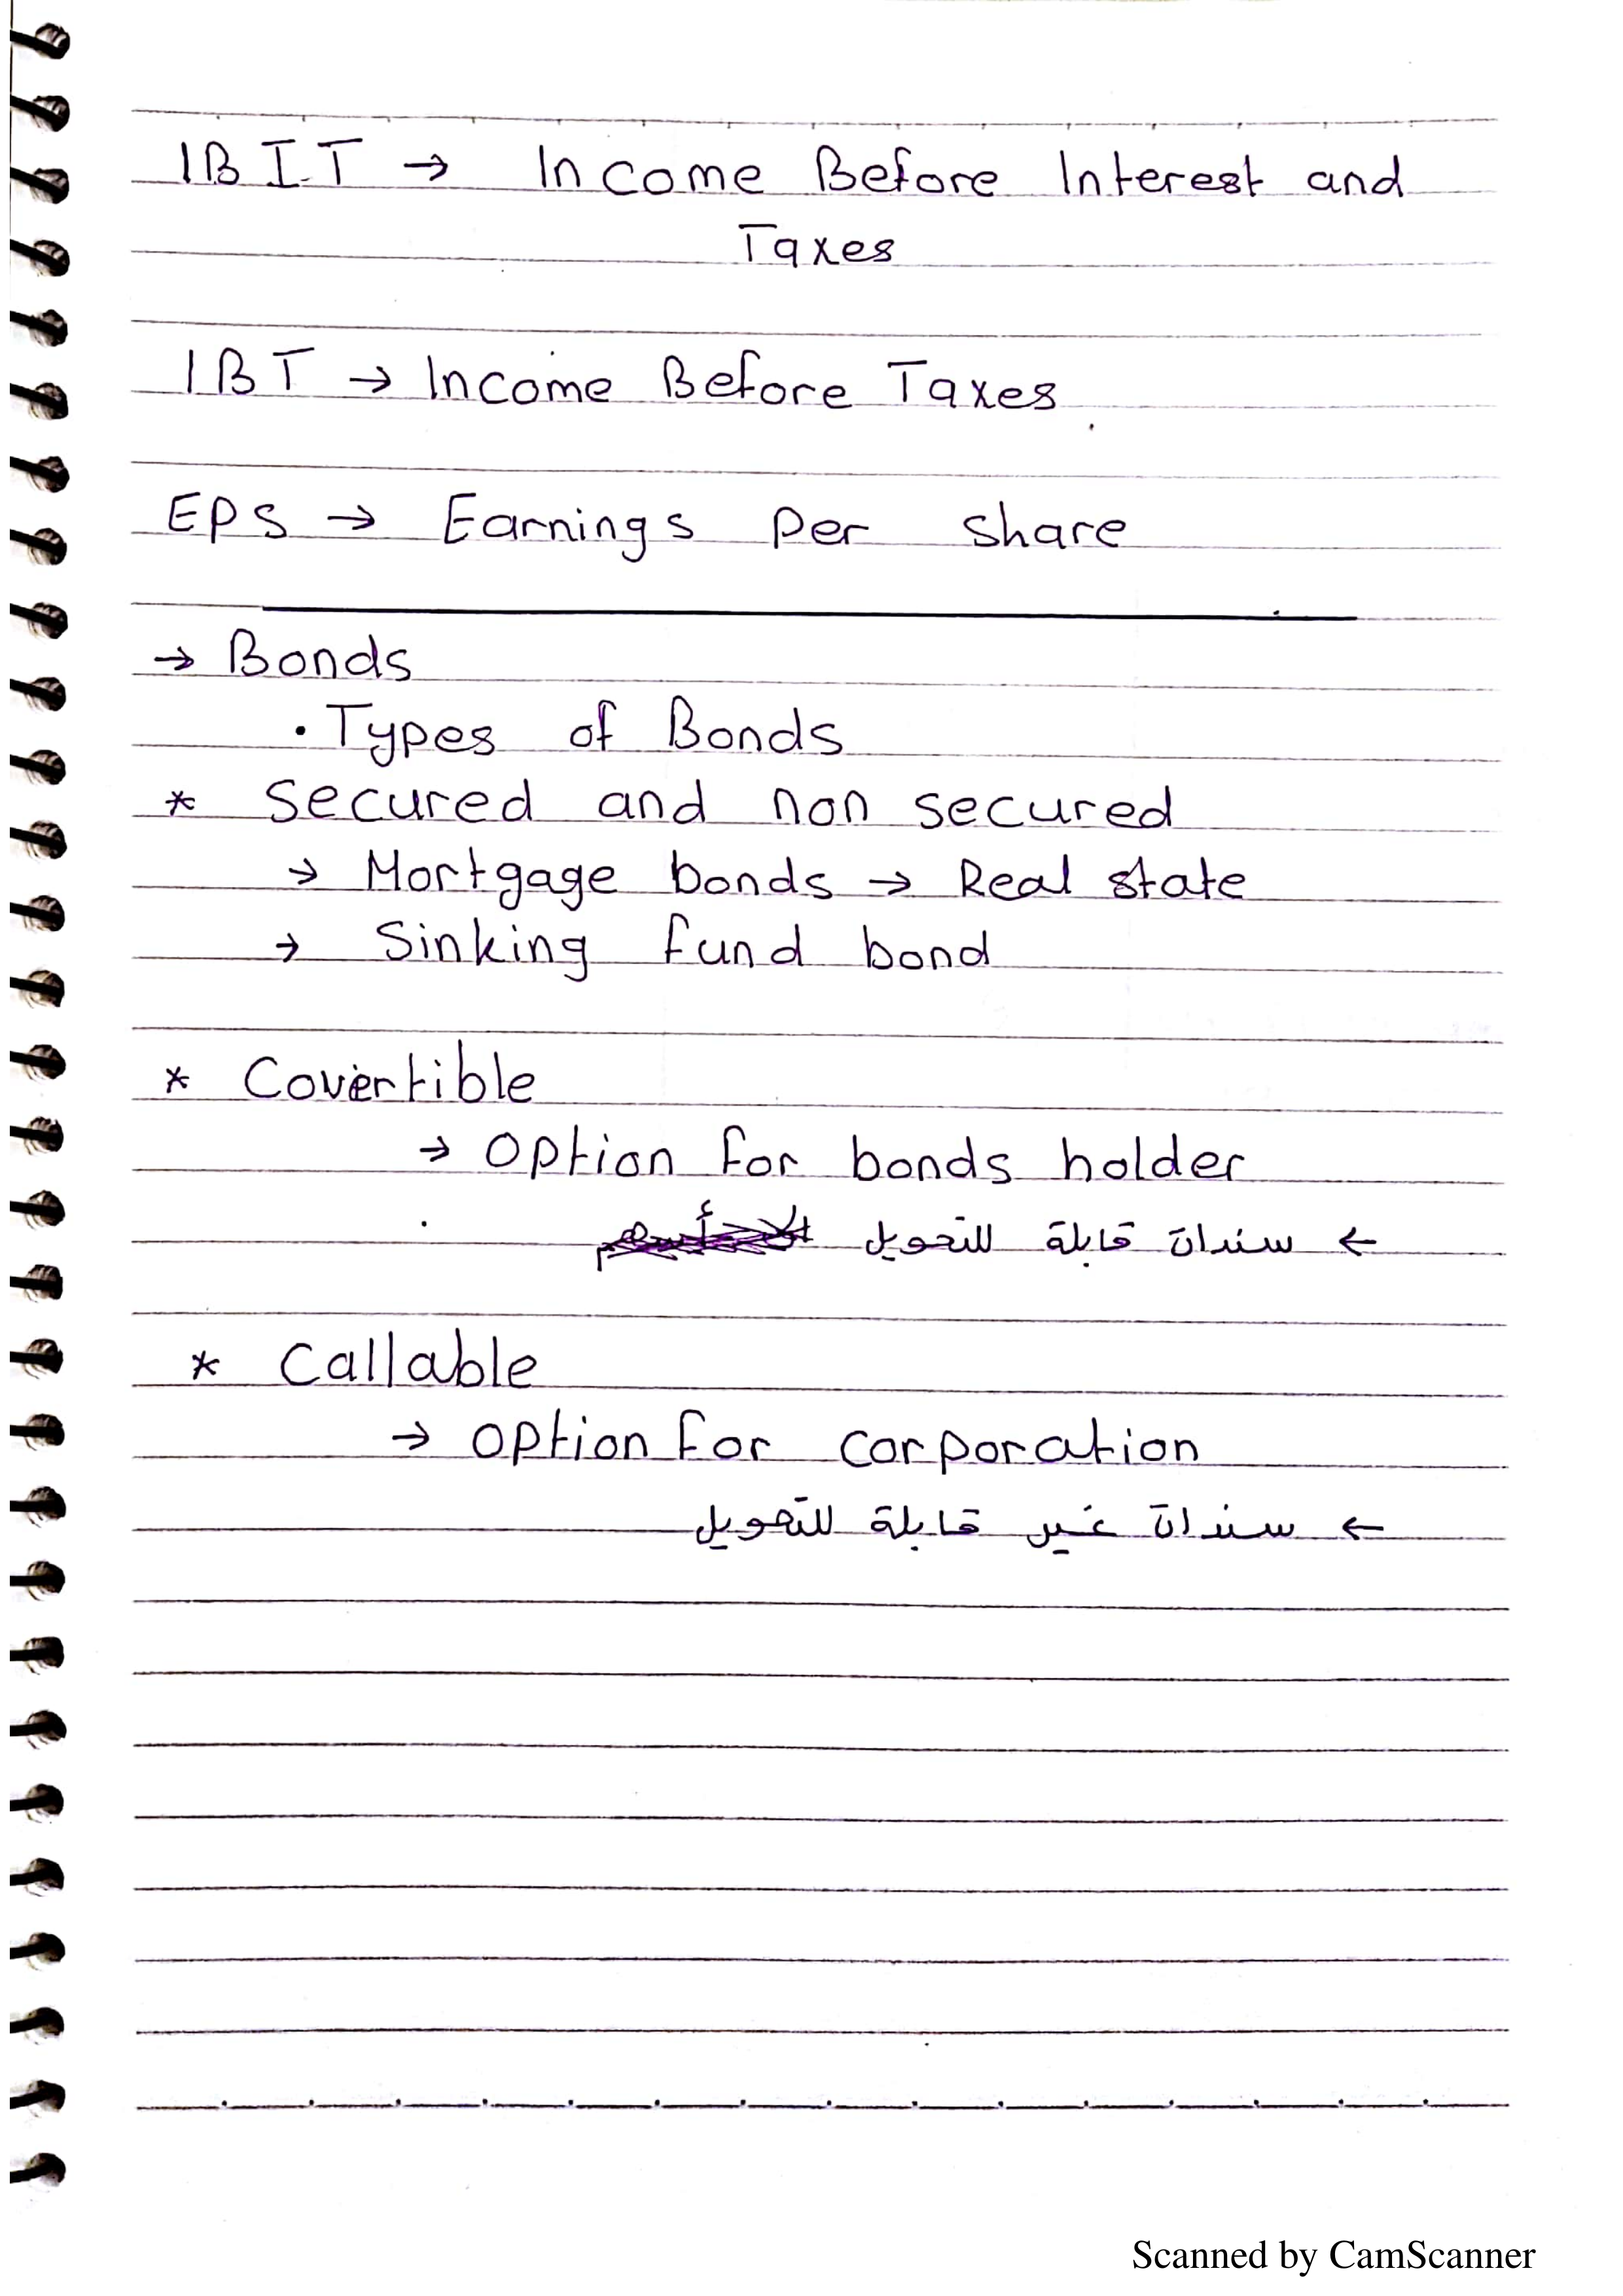 IBIT → Income Before Interest and
Taxes
IBT → Income Before Taxes
EPS → Earnings Per share
→ Bonds
• Types of Bonds
* Secured and non secured
→ Mortgage bonds → Real state
→ Sinking fund bond
* Covertible
→ Option for bonds holder
← سندات قابلة للتحويل
* Callable
→ Option for corporation
← سندات غير قابلة للتحويل
Scanned by CamScanner